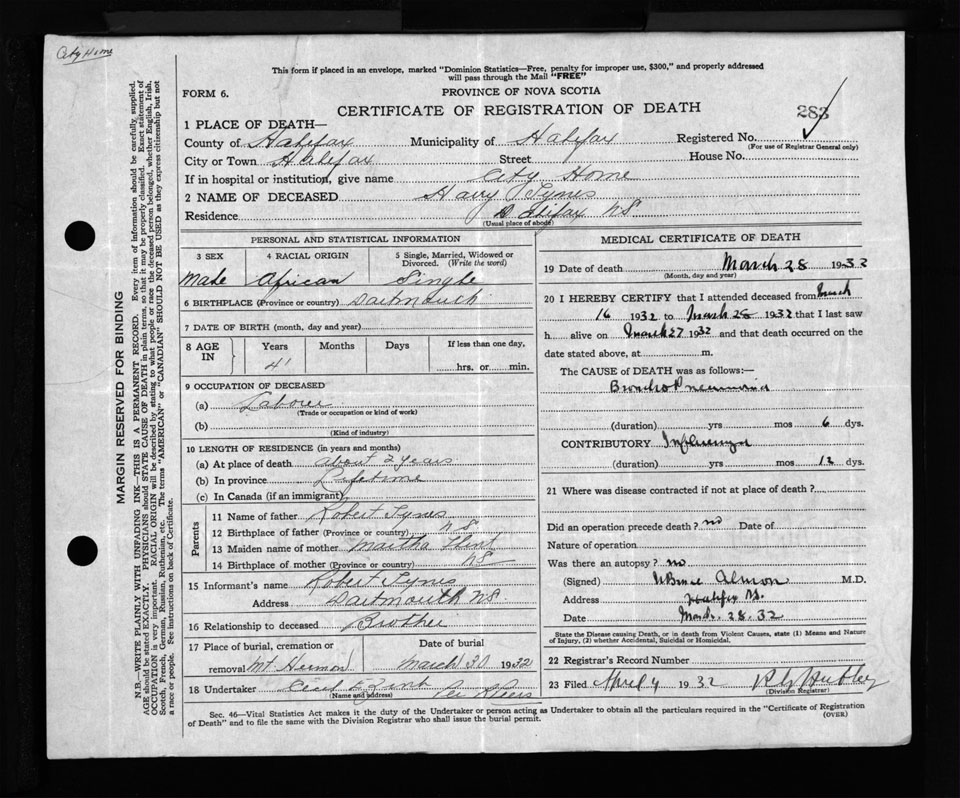 City Home
This form if placed in an envelope, marked "Dominion Statistics—Free, penalty for improper use, $300," and properly addressed
will pass through the Mail "FREE"
FORM 6.
PROVINCE OF NOVA SCOTIA
CERTIFICATE OF REGISTRATION OF DEATH
283
1 PLACE OF DEATH—
County of Halifax Municipality of Halifax Registered No.
(For use of Registrar General only)
City or Town Halifax Street House No.
If in hospital or institution, give name City Home
2 NAME OF DECEASED Harry Tynes
Residence Halifax NS
(Usual place of abode)
PERSONAL AND STATISTICAL INFORMATION
3 SEX 4 RACIAL ORIGIN 5 Single, Married, Widowed or Divorced. (Write the word)
Male African Single
6 BIRTHPLACE (Province or country) Dartmouth
7 DATE OF BIRTH (month, day and year)
8 AGE IN Years Months Days If less than one day,
41 hrs. or min.
9 OCCUPATION OF DECEASED
(a) Laborer
(Trade or occupation or kind of work)
(b)
(Kind of industry)
10 LENGTH OF RESIDENCE (in years and months)
(a) At place of death about 2 years
(b) In province Lifetime
(c) In Canada (if an immigrant)
Parents
11 Name of father Robert Tynes
12 Birthplace of father (Province or country) NS
13 Maiden name of mother Martha Flint
14 Birthplace of mother (Province or country) NS
15 Informant's name Robert Tynes
Address Dartmouth NS
16 Relationship to deceased Brother
17 Place of burial, cremation or removal Date of burial
Mt Hermon March 30 1932
18 Undertaker Cecil E Zink
(Name and address)
MEDICAL CERTIFICATE OF DEATH
19 Date of death March 28 1932
(Month, day and year)
20 I HEREBY CERTIFY that I attended deceased from March
16 1932 to March 28 1932 that I last saw
h alive on March 27 1932 and that death occurred on the
date stated above, at m.
The CAUSE OF DEATH was as follows:—
Broncho Pneumonia
(duration) yrs mos 6 dys.
CONTRIBUTORY Influenza
(duration) yrs mos 12 dys.
21 Where was disease contracted if not at place of death?
Did an operation precede death? no Date of
Nature of operation
Was there an autopsy? no
(Signed) W Bruce Almon M.D.
Address Halifax NS
Date March. 28. 32
State the Disease causing Death, or in death from Violent Causes, state (1) Means and Nature
of Injury, (2) whether Accidental, Suicidal or Homicidal.
22 Registrar's Record Number
23 Filed April 4 1932
(Division Registrar)
Sec. 46—Vital Statistics Act makes it the duty of the Undertaker or person acting as Undertaker to obtain all the particulars required in the "Certificate of Registration
of Death" and to file the same with the Division Registrar who shall issue the burial permit.
(OVER)
MARGIN RESERVED FOR BINDING
N.B.—WRITE PLAINLY WITH UNFADING INK—THIS IS A PERMANENT RECORD. Every item of information should be carefully supplied.
AGE should be stated EXACTLY. PHYSICIANS should STATE CAUSE OF DEATH in plain terms, so that it may be properly classified. Exact statement of
OCCUPATION is very important. RACIAL ORIGIN will be described by stating to what people or race the deceased person belonged, whether English, Irish,
Scotch, French, German, Russian, Ruthenian, etc. The terms "AMERICAN" or "CANADIAN" SHOULD NOT BE USED as they express citizenship but not
a race or people. See instructions on back of Certificate.